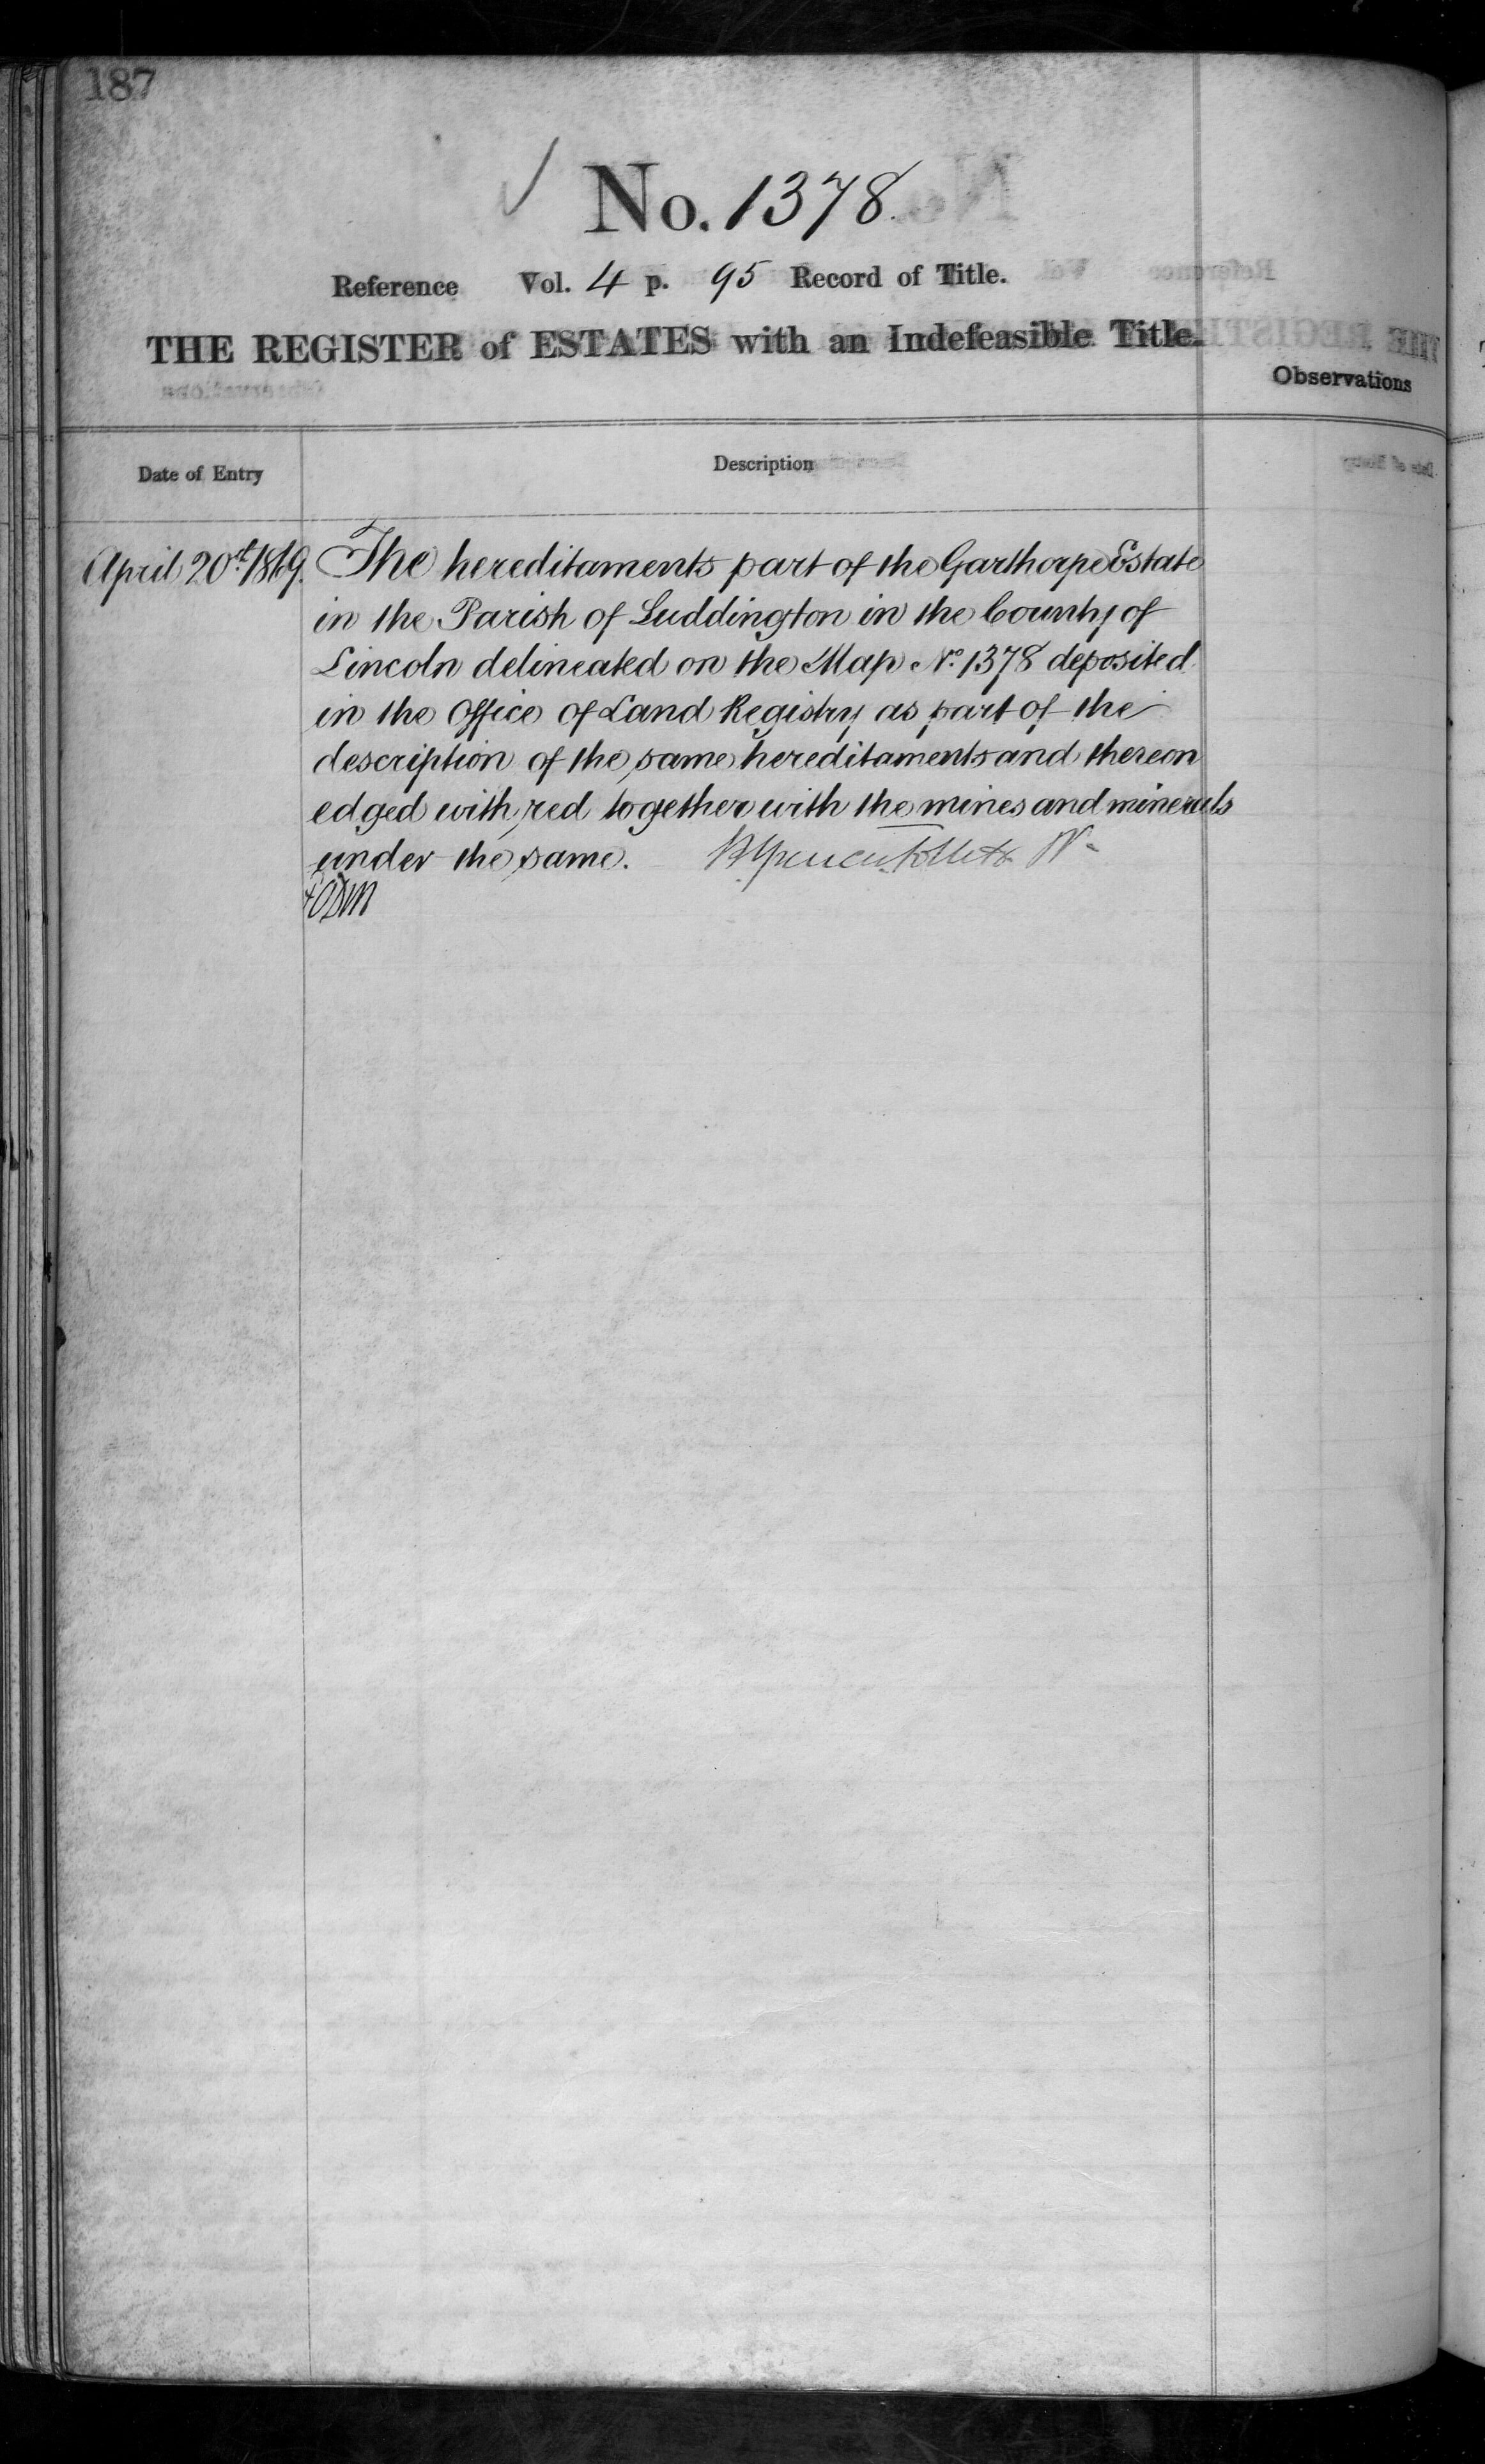 187
No. 1378.
Reference Vol. 4 p. 95 Record of Title.
THE REGISTER of ESTATES with an Indefeasible Title.
Observations
Date of Entry
Description
April 20th 1869. The hereditaments part of the Garthorpe Estate
in the Parish of Luddington in the County of
Lincoln delineated on the Map No. 1378 deposited
in the Office of Land Registry as part of the
description of the same hereditaments and thereon
edged with red together with the mines and minerals
under the same.